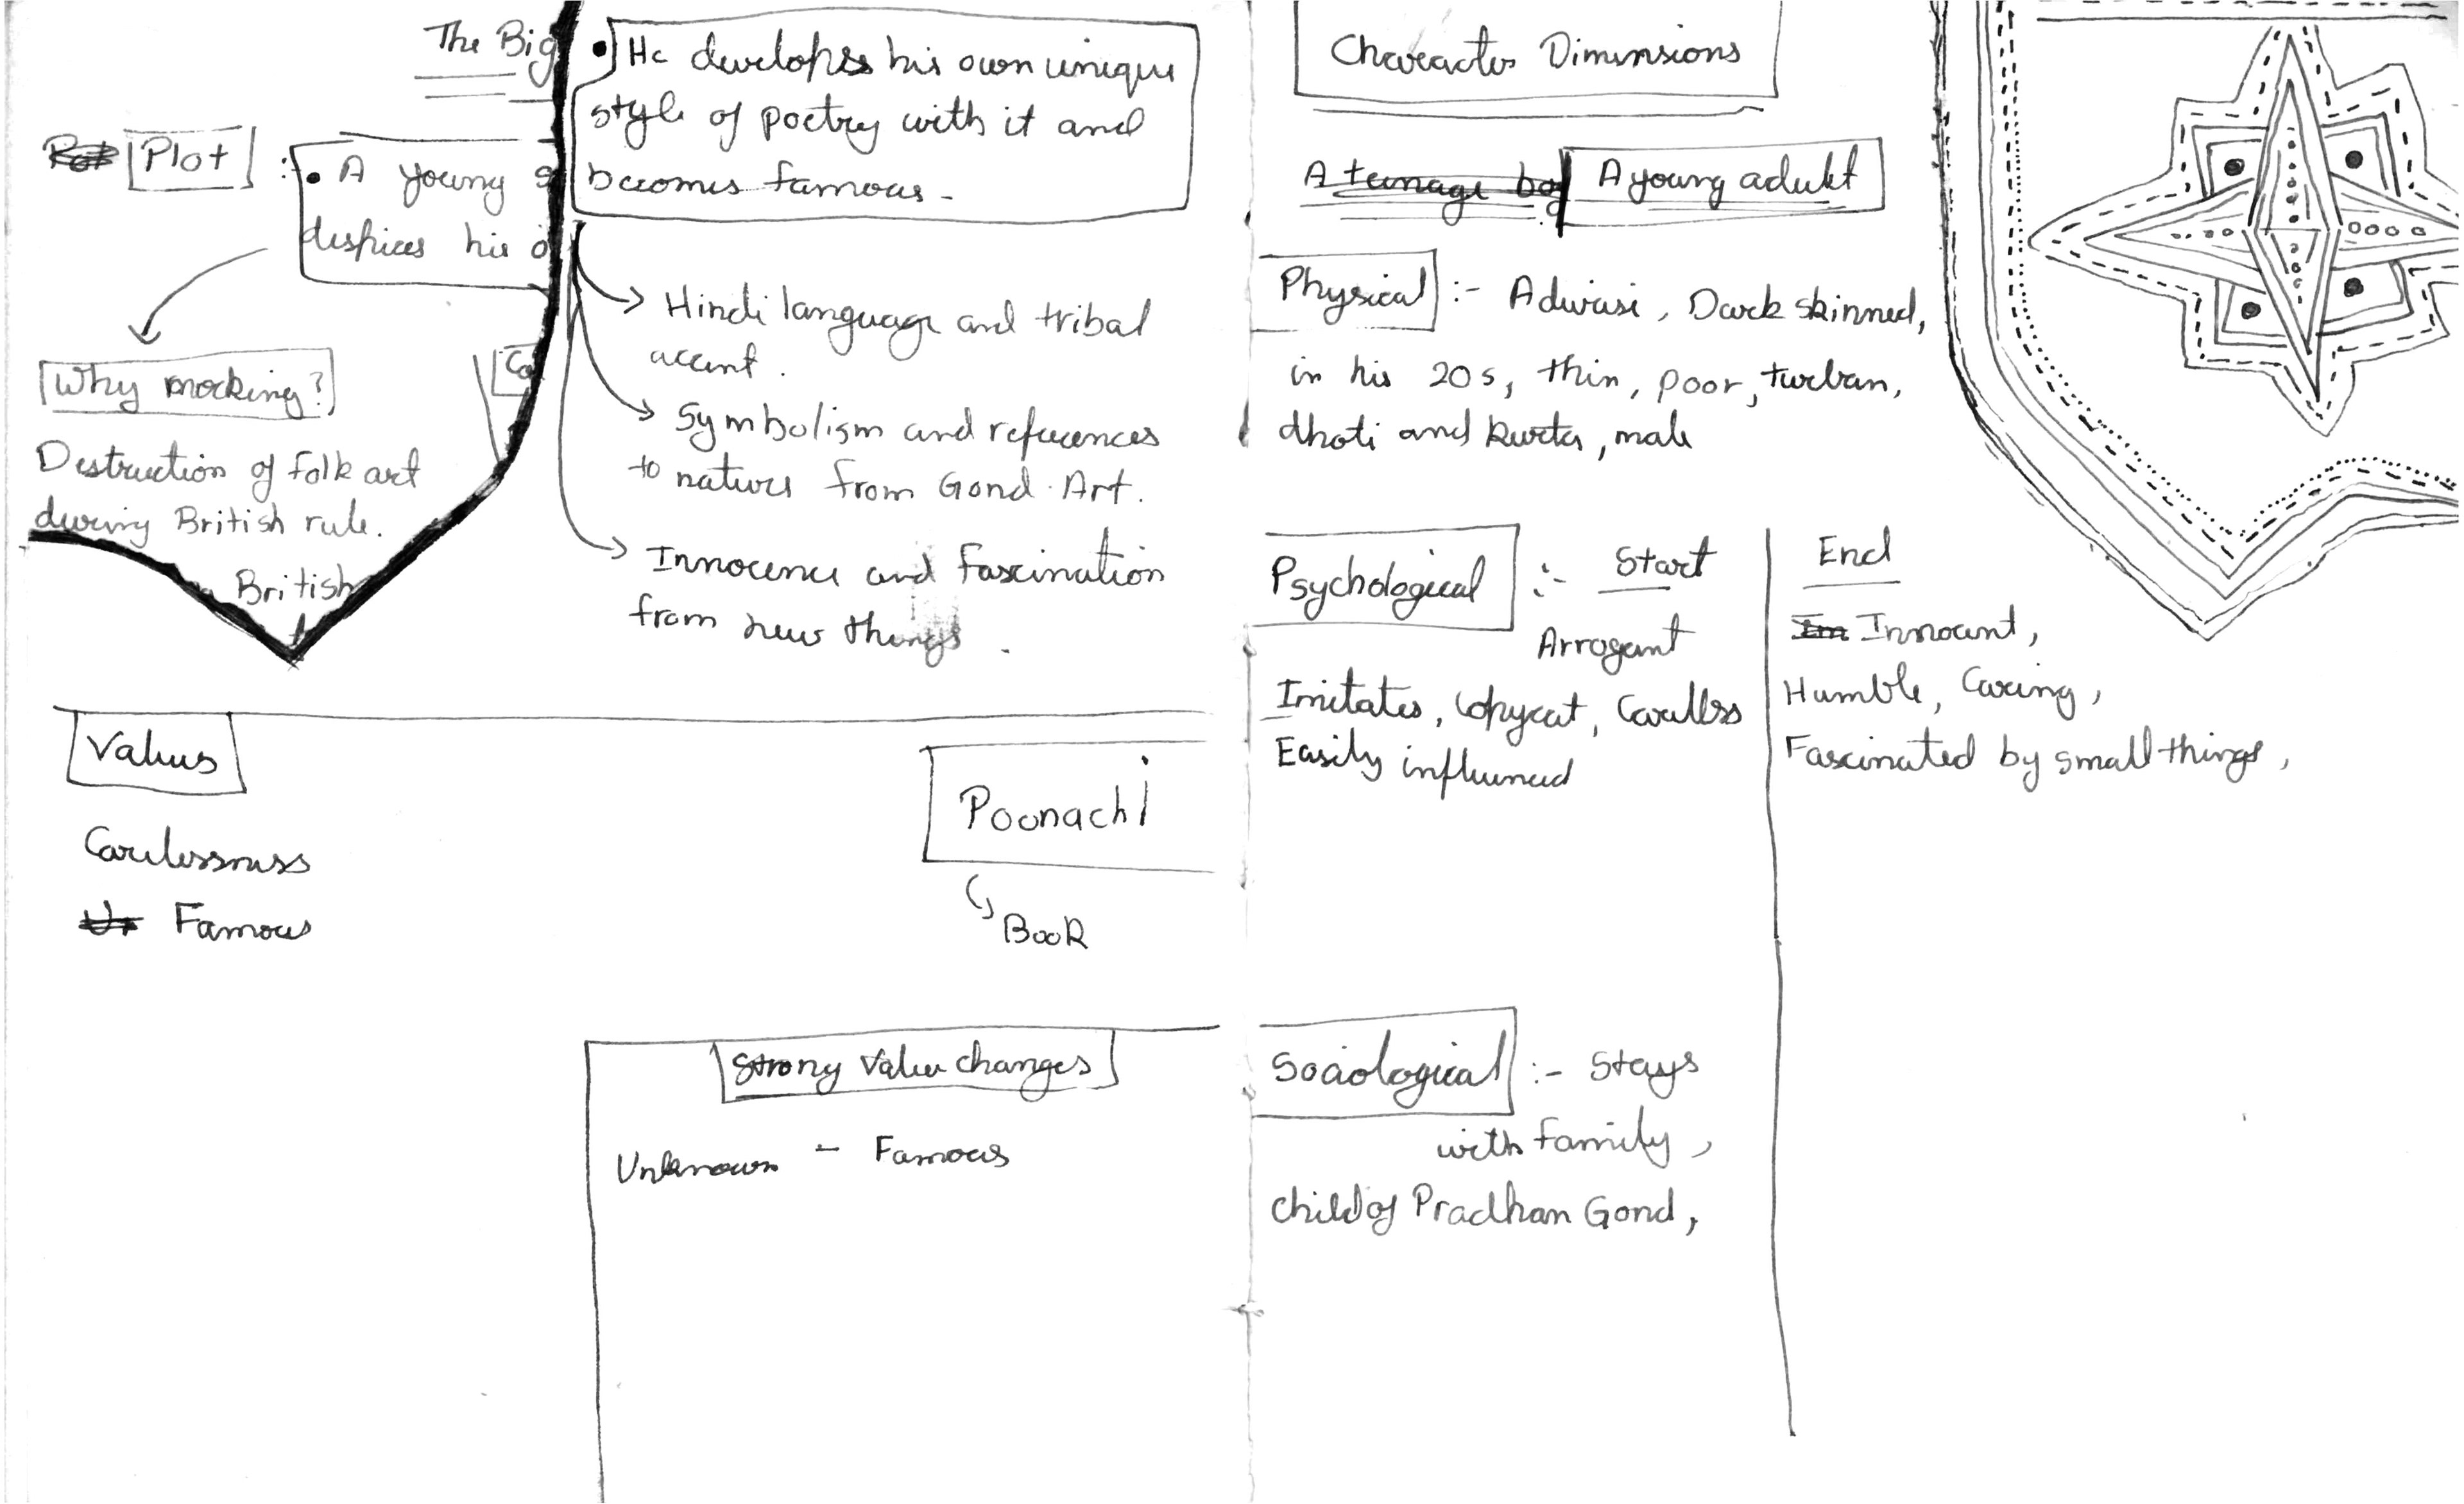 The Big
Plot :- • A young
despices his
Why mocking?
Destruction of folk art
during British rule.
British
• He develops his own unique
style of poetry with it and
becomes famous.
Hindi language and tribal
accent.
Symbolism and references
to natives from Gond Art.
Innocence and fascination
from new things.
Values
Carelessness
Famous
Poonachi
Book
Strong Value changes
Unknown - Famous
Character Dimensions
A teenage boy A young adult
Physical :- Adivasi, Dark skinned,
in his 20s, thin, poor, turban,
dhoti and kurta, male
Psychological :- Start
Arrogant
Imitates, Copycat, Careless
Easily influenced
End
Innocent,
Humble, Caring,
Fascinated by small things,
Sociological :- Stays
with family,
child of Pradhan Gond,